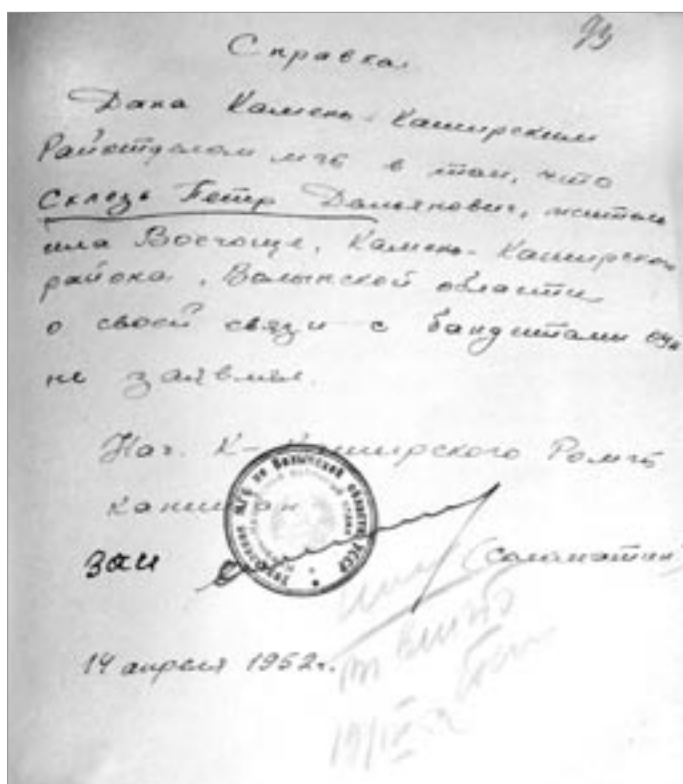 93
Справка.
Дана Камень-Каширским
Райотделом мгб в том, что
Склезь Петр Дамьянович, житель
села Восчоще, Камень-Каширского
района, Волынской области
о своей связи с бандитами оун
не заявлял.
Нач. К-Каширского Ромгб
капитан
зам (Соломатин)
Управление МГБ по Волынской области УССР
14 апреля 1952г.
19/IV